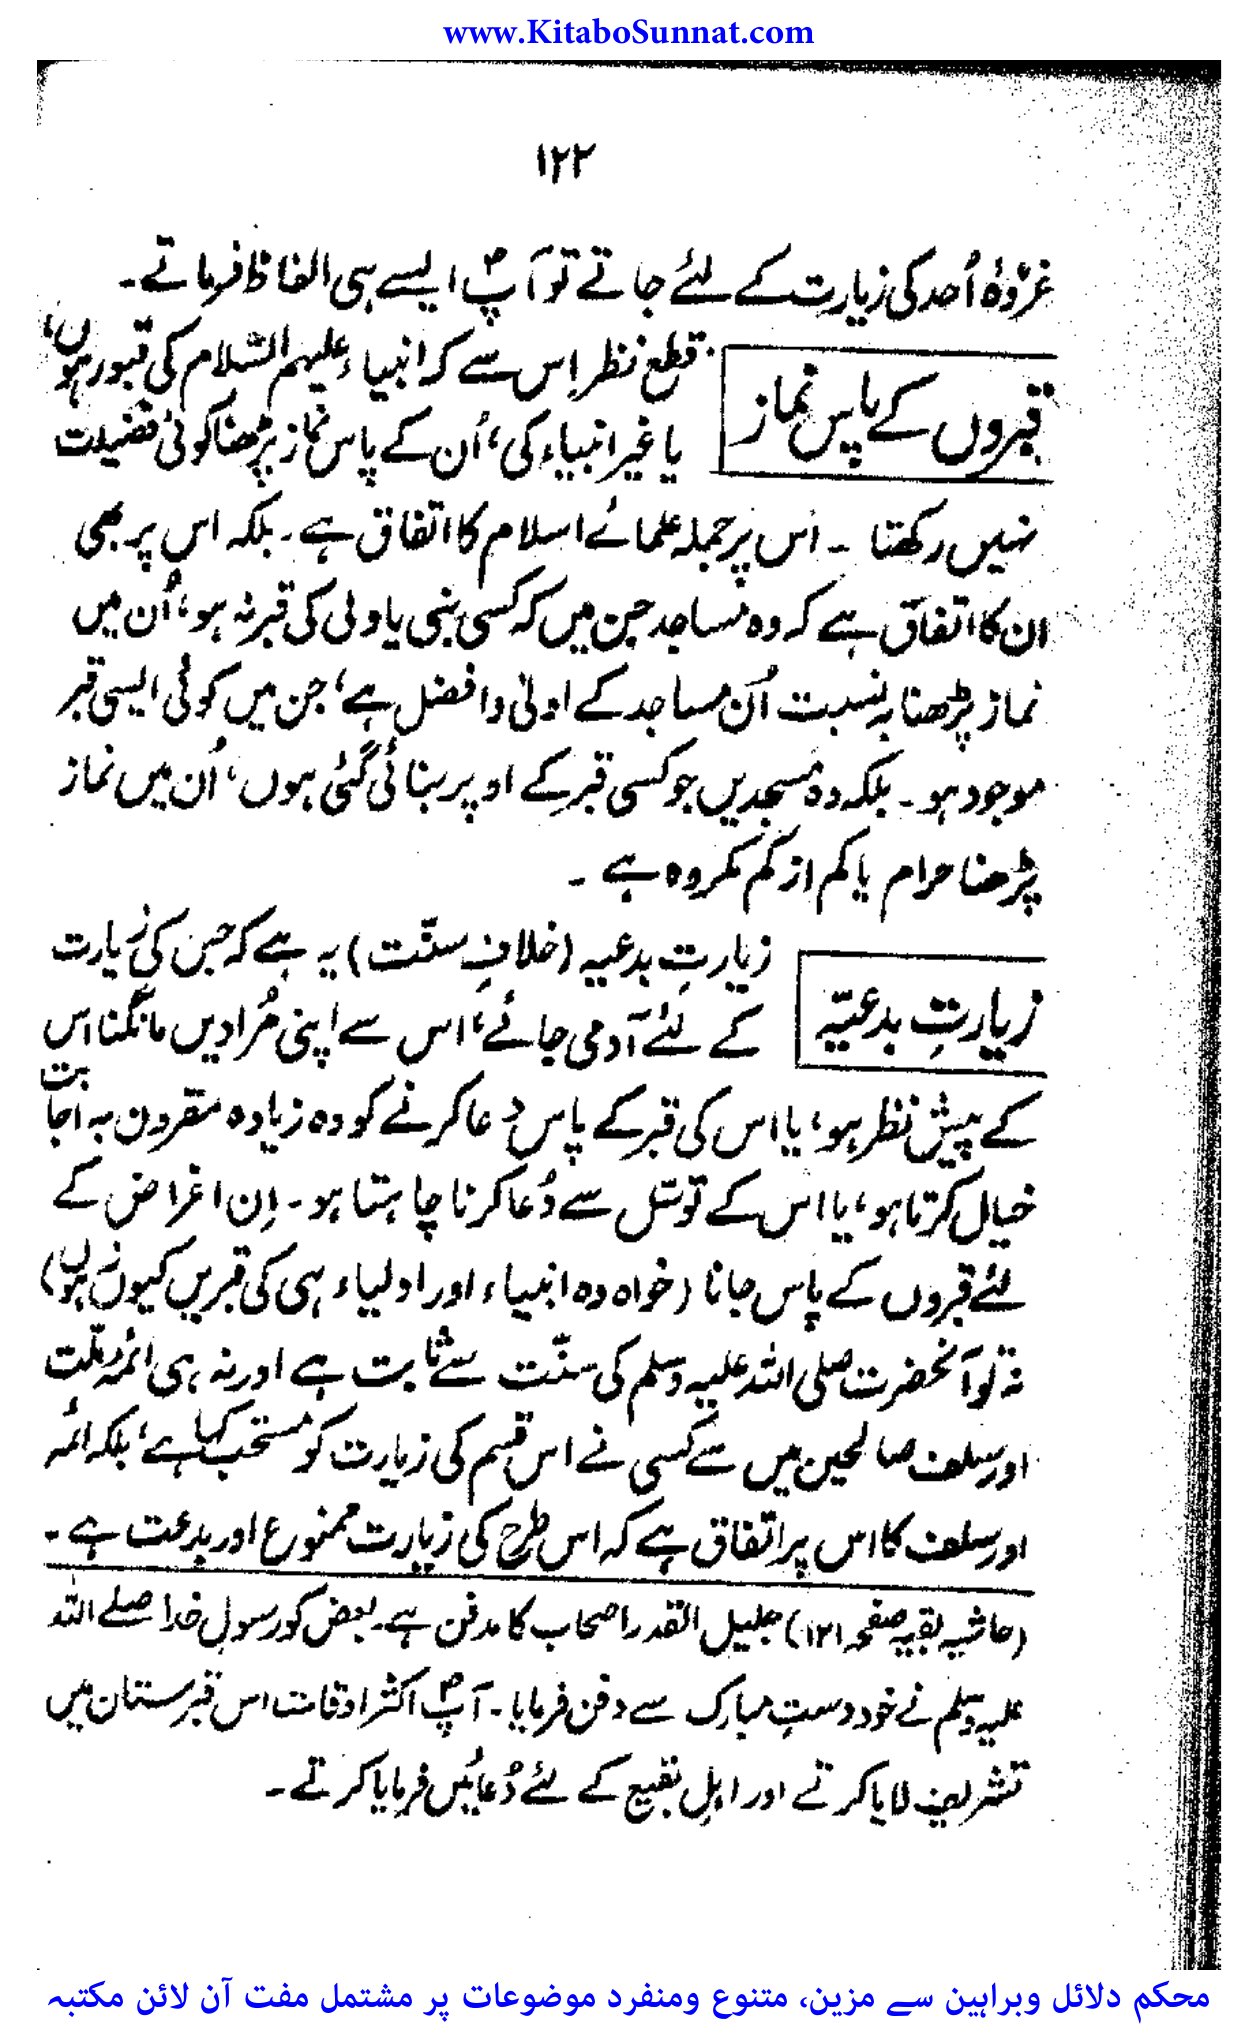 www.KitaboSunnat.com
۱۲۲
غزوۂ اُحد کی زیارت کے لئے جاتے تو آپؐ ایسے ہی الفاظ فرماتے۔
قبروں کے پاس نماز
قطع نظر اِس سے کہ انبیاء علیہم السّلام کی قبور ہوں،
یا غیر انبیاء کی، اُن کے پاس نماز پڑھنا کوئی فضیلت
نہیں رکھتا ۔ اس پر جملہ علمائے اسلام کا اتفاق ہے۔ بلکہ اس پر بھی
ان کا اتفاق ہے کہ وہ مساجد جن میں کہ کسی نبی یا ولی کی قبر نہ ہو، اُن میں
نماز پڑھنا بہ نسبت اُن مساجد کے اولیٰ و افضل ہے، جن میں کوئی ایسی قبر
موجود ہو۔ بلکہ وہ مسجدیں جو کسی قبر کے اوپر بنائی گئی ہوں، اُن میں نماز
پڑھنا حرام یا کم از کم مکروہ ہے ۔
زیارتِ بدعیّہ
زیارتِ بدعیہ (خلافِ سنّت) یہ ہے کہ جس کی زیارت
کے لئے آدمی جائے، اس سے اپنی مُرادیں مانگنا اس
کے پیشِ نظر ہو، یا اس کی قبر کے پاس دُعا کرنے کو وہ زیادہ مقرون بہ اجابت
خیال کرتا ہو، یا اس کے توسّل سے دُعا کرنا چاہتا ہو۔ اِن اغراض کے
لئے قبروں کے پاس جانا (خواہ وہ انبیاء اور اولیاء ہی کی قبریں کیوں نہ ہوں)
نہ تو آنحضرت صلی اللہ علیہ وسلم کی سنّت سے ثابت ہے اور نہ ہی ائمہ ملّت
اور سلف صالحین میں سے کسی نے اس قسم کی زیارت کو مستحب کہا ہے، بلکہ ائمہ
اور سلف کا اس پر اتفاق ہے کہ اس طرح کی زیارت ممنوع اور بدعت ہے ۔
(حاشیہ بقیہ صفحہ ۱۲۱) جلیل القدر اصحاب کا مدفن ہے۔ بعض کو رسولِ خدا صلے اللہ
علیہ وسلم نے خود دستِ مبارک سے دفن فرمایا ۔ آپؐ اکثر اوقات اس قبرستان میں
تشریف لایا کرتے اور اہلِ بقیع کے لئے دُعائیں فرمایا کرتے ۔
محکم دلائل وبراہین سے مزین، متنوع ومنفرد موضوعات پر مشتمل مفت آن لائن مکتبہ